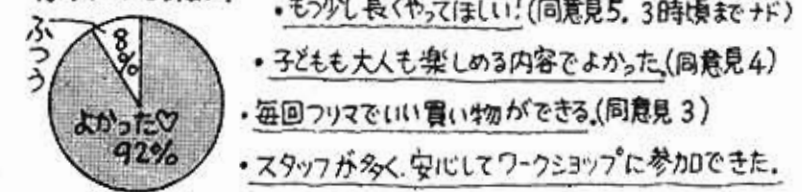 ふつう
8%
よかった♡
92%
・もう少し長くやってほしい!(同意見5. 3時頃までナド)
・子どもも大人も楽しめる内容でよかった.(同意見4)
・毎回フリマでいい買い物ができる.(同意見3)
・スタッフが多く、安心してワークショップに参加できた.